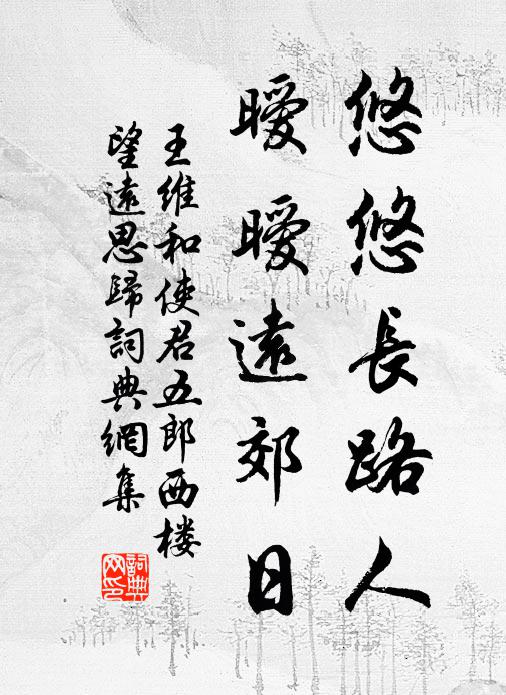 悠悠長路人
曖曖遠郊日
王维和使君五郎西楼
望遠思歸詞典網集
詞典网印